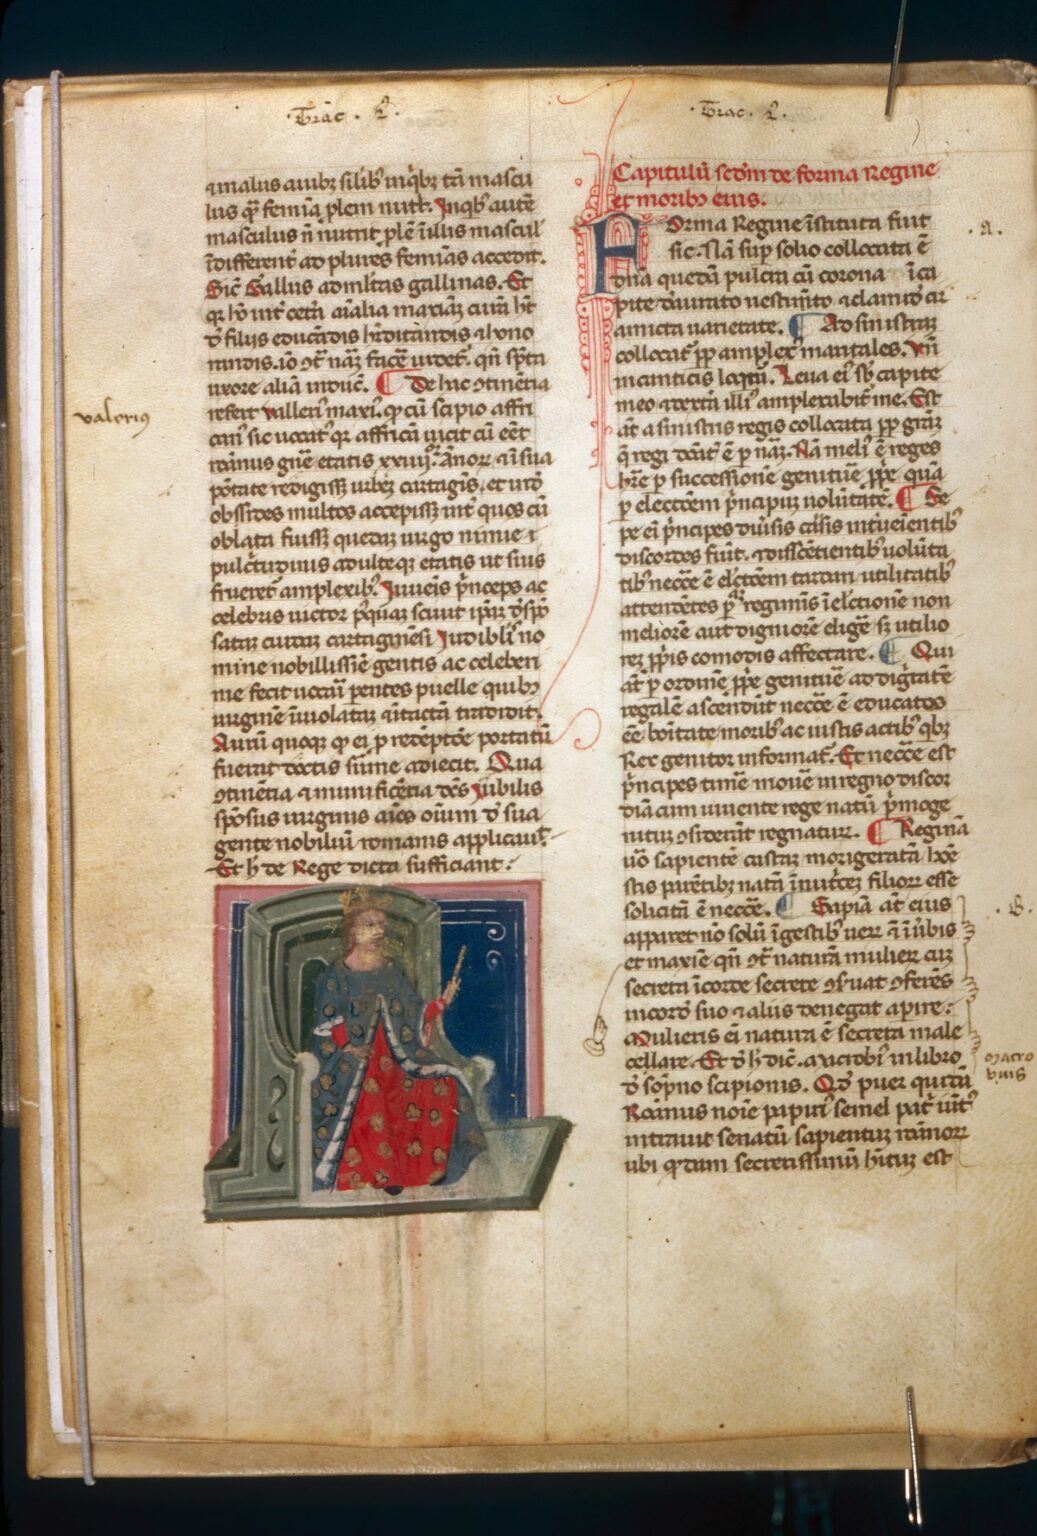 Trac̄. 2.
⁊ malus auibꝫ silibꝫ in q̇bꝫ tm̄ mascu
lus qꝫ femīa plem nutͥt. In qbꝫ autē
masculus n̄ nutrit plē ī illis mascul᷒
īdifferent᷒ ad plures femīas accedit.
Sic̄ Gallus ad ml̄tas gallinas. Et
qꝛ hō int᷒ cet̄a aīalia maxiāꝫ curā hꝫt
d̄ filijs educādis hēditandis ⁊ hono
randis. iō ꝯt᷒ nāꝫ facē uidet᷒. qn̄ sp̄ta
uxore aliā induc̄. ¶ De hac ꝯtinētia
valeriꝰ
refert ualleri᷒ maxi᷒. ꝙ cū scipio affri
can᷒ sic uocat᷒ qꝛ affricā uicit cū eēt
rōanus gn̄e etatis xxiiij. ānoꝝ ⁊ ī sua
p̄tate redigissꝫ urbeꝫ cartagīs. et inḋ
obssides multos accepissꝫ int᷒ quos cū
oblata fuissꝫ quedaꝫ uirgo nimie
pulc̓tudinis adulteqꝫ etatis ut sius
frueret᷒ amplexibꝫ. Iuueīs p̓nceps ac
celebris uictor p̱quaꝫ sciuit ip̄aꝫ d̄spō
sataꝫ cuidaꝫ cartaginēsi Indibili no
mine nobilissīe gentis ac celeberi
me fecit uocari parentes puelle quibꝫ
uirginē īuiolataꝫ ⁊ ītactā tradidit.
Aurū quoqꝫ ꝙ ei p̱ redēptōe portatū
fuerat doctis sūme adiecit. Qua
ꝯtinētia ⁊ munificētia dc̄s Iubilis
spōsus uirginis aīos oīum d̄ sua
gente nobiliuꝫ romanis applicauit.
Et h̄ de Rege dicta sufficiant.
Trac. 2.
Capitulū scd̄m de forma Regine
et moribꝫ eius.
Forma Regine īstituta fuit
.a.
sic. Nā sup solio collocata ē
dn̄a quedā pulcra cū corona ī ca
pite deaurato uestimēto ⁊ clamide cir
amicta uarietate. ¶ Ad sinistraꝫ
collocat᷒ ꝓp amplex᷒ maritales. Vn̄
in canticis legit᷒. Leua ei᷒ sb̄ capite
meo ⁊ dextra illi᷒ amplexabit᷒ me. Est
āt a sinistris regis collocata ꝓp gr̄aꝫ
q̄ regi data ē p nāꝫ. Nā meli᷒ ē reges
hr̄e p successionē genitūe ꝓpe quā
p electōem p̓ncipuꝫ uolūtatē. ¶ Se
pe ei᷒ p̓ncipes diūsis cāsis int̓ueientibꝫ
discordes fiūt. ⁊ dissētientibꝫ uolūta
tibꝫ necc̄e ē el̄ctōem tardari utilitatibꝫ
attendētes p̓ regiminis ī elctionē non
meliorē aut digniorē eligē sꝫ utilio
reꝫ ꝓp̓is comodis affectare. ¶ Qui
āt p ordinē ꝓpe genitūe ad dig̓tatē
regalē ascendūt necc̄e ē educatos
eē bōitate moribꝫ ac iustis actibꝫ q̄bꝫ
Rex genitor informat᷒. Et necc̄e est
p̓ncipes timē mouē in regno discor
diā cum uiuente rege natū p̓moge
nituꝫ ꝯsiderāt regnatur. ¶ Reginā
uō sapientē castaꝫ morigeratā hōe
stis parētibꝫ natā ī nut̓ceꝫ filioꝝ esse
solicitā ē necc̄e. ¶ Sapīa āt eius
.B.
apparet nō solū ī gestibꝫ ueꝝ ⁊ ī ūbis
et maxīe qn̄ ꝯt᷒ naturā mulieꝝ cuꝫ
secreta ī corde secrete ꝯseruat ꝯferēs
in corde suo ⁊ aliis denegat apire.
Mulieris ei᷒ natura ē secreta male
cellare. Et d̄ h̄ dic̄. macrobi᷒ in libro
macro
bius
d̄ sop̄no scipionis. Qd̄ puer quidā
Rōanus noīe papiri᷒ semel pat̓ iūct᷒
intrauit senatū sapientuꝫ rōanoꝝ
ubi qdam secretissimū h̄ituꝫ est